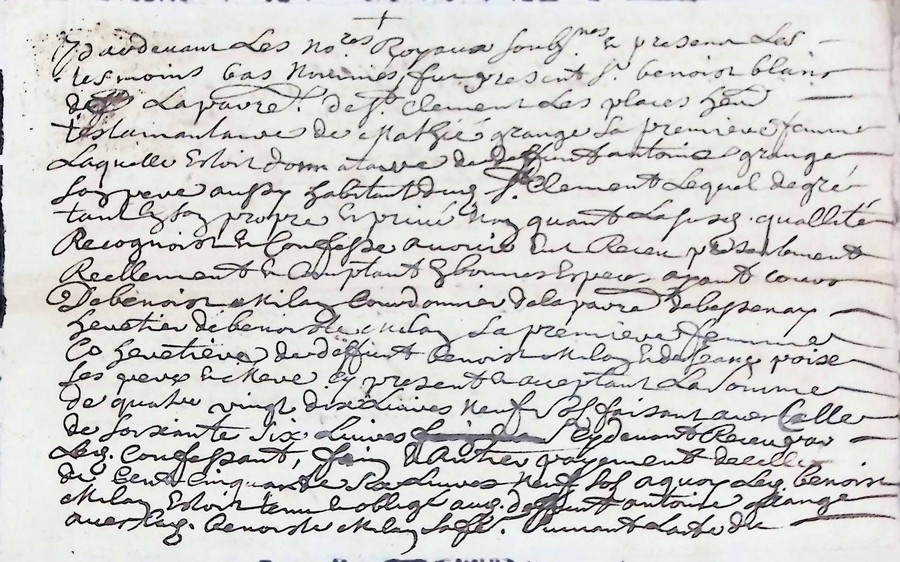 Pardevant Les no.res Royaux soub.nes Et presens Les
tesmoins bas Nommés fut present Sr benoist blanc
de La pavre. de St Clement Les places her
testamantaire de Mathie grange Sa premiere femme
Laquelle Estoit donnataire de deffunt antoine grange
Son pere aussy habitant dud St Clement Lequel de gré
tant En son propre Et privé nom quant La susd. quallité
Recognoist Et Confesse avoir Eu Receu presentement
Reellement Et Comptant En bonnes Especes ayant cours
De benoist Milan Courdonnier de la pavre de bessenay
heretier de benoiste Milan La premiere femme
Co heretiere de deffunt benoist Milan Et de poise
Les pere Et Mere Cy present Et acceptant La Somme
de quatre vingt dix Livres Neuf sols faisant avec Celle
de soixante six Livres Cydevant Receu par
Led. Confessant, Entier payement de celle
de Cent Cinquante six Livres Neuf sols a quoy Led. benoist
Milan Estoit tenu Et obligé aud. deffunt antoine grange
avec Lad. benoiste Milan Suivant Lacte du